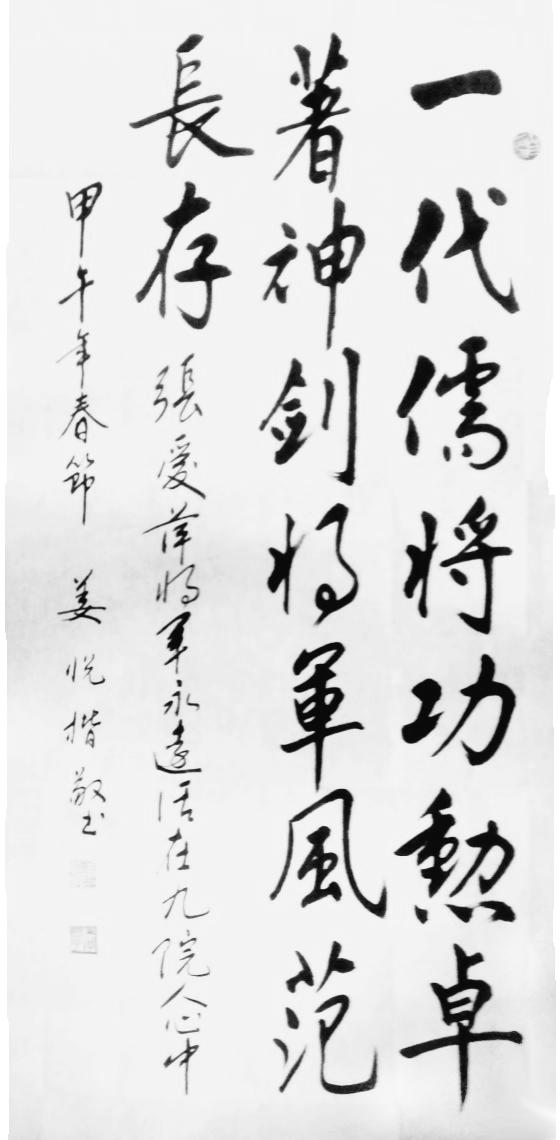 一代儒将功勲卓
著神剑将軍風范
長存 張愛萍将军永遠活在九院人心中
甲午年春節 姜悦楷敬书